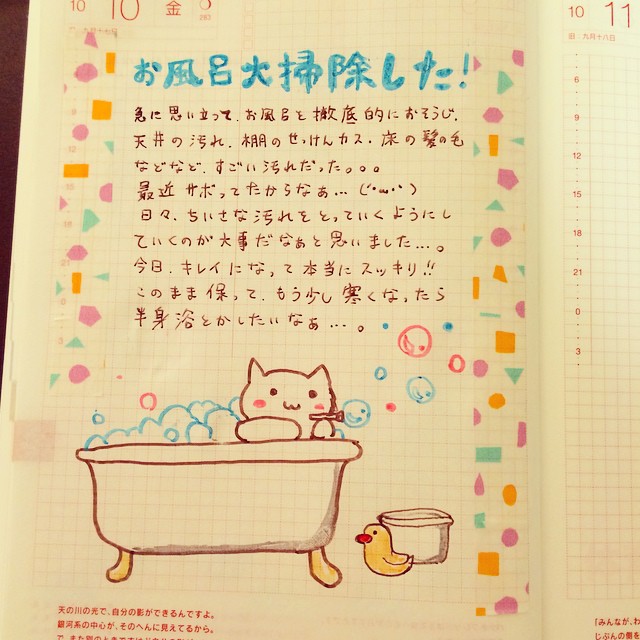 10
10 金
263
旧 九月十七日
お風呂大掃除した!
急に思い立って、お風呂を徹底的におそうじ。
天井の汚れ、棚のせっけんカス、床の髪の毛
などなど、すごい汚れだった。。。
最近サボってたからなぁ…(´・ω・`)
日々、ちいさな汚れをとっていくようにし
ていくのが大事だなぁと思いました…。
今日、キレイになって本当にスッキリ!!
このまま保って、もう少し寒くなったら
半身浴とかしたいなぁ…。
天の川の光で、自分の影ができるんですよ。
銀河系の中心が、そのへんに見えてるから。
10
11
旧 九月十八日
6
9
12
15
18
21
0
3
「みんなが、わ
じぶんの傷を